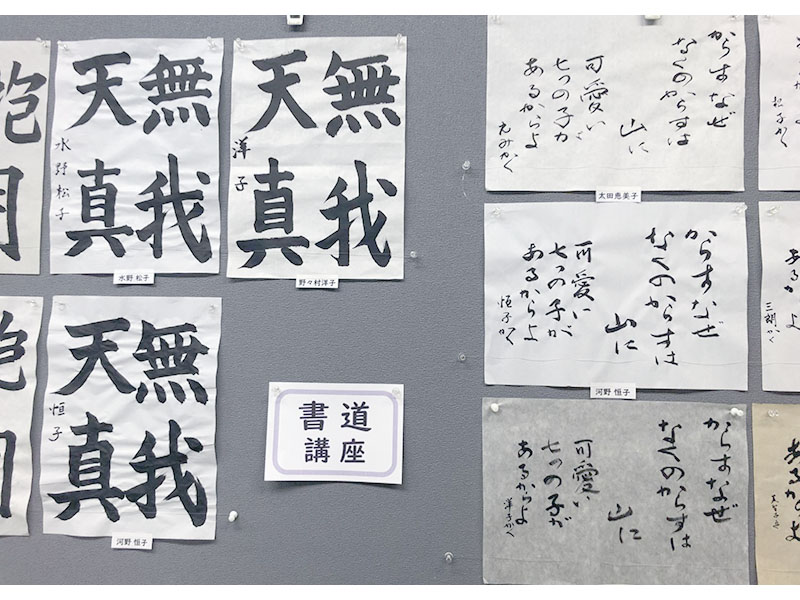 無我
天真
水野松子
水野 松子
無我
天真
洋子
野々村洋子
無我
天真
恒子
河野 恒子
書道
講座
からすなぜ
なくのからすは
山に
可愛い
七つの子が
あるからよ
えみかく
太田恵美子
からすなぜ
なくのからすは
山に
可愛い
七つの子が
あるからよ
恒子かく
河野 恒子
からすなぜ
なくのからすは
山に
可愛い
七つの子が
あるからよ
洋子かく
松子かく